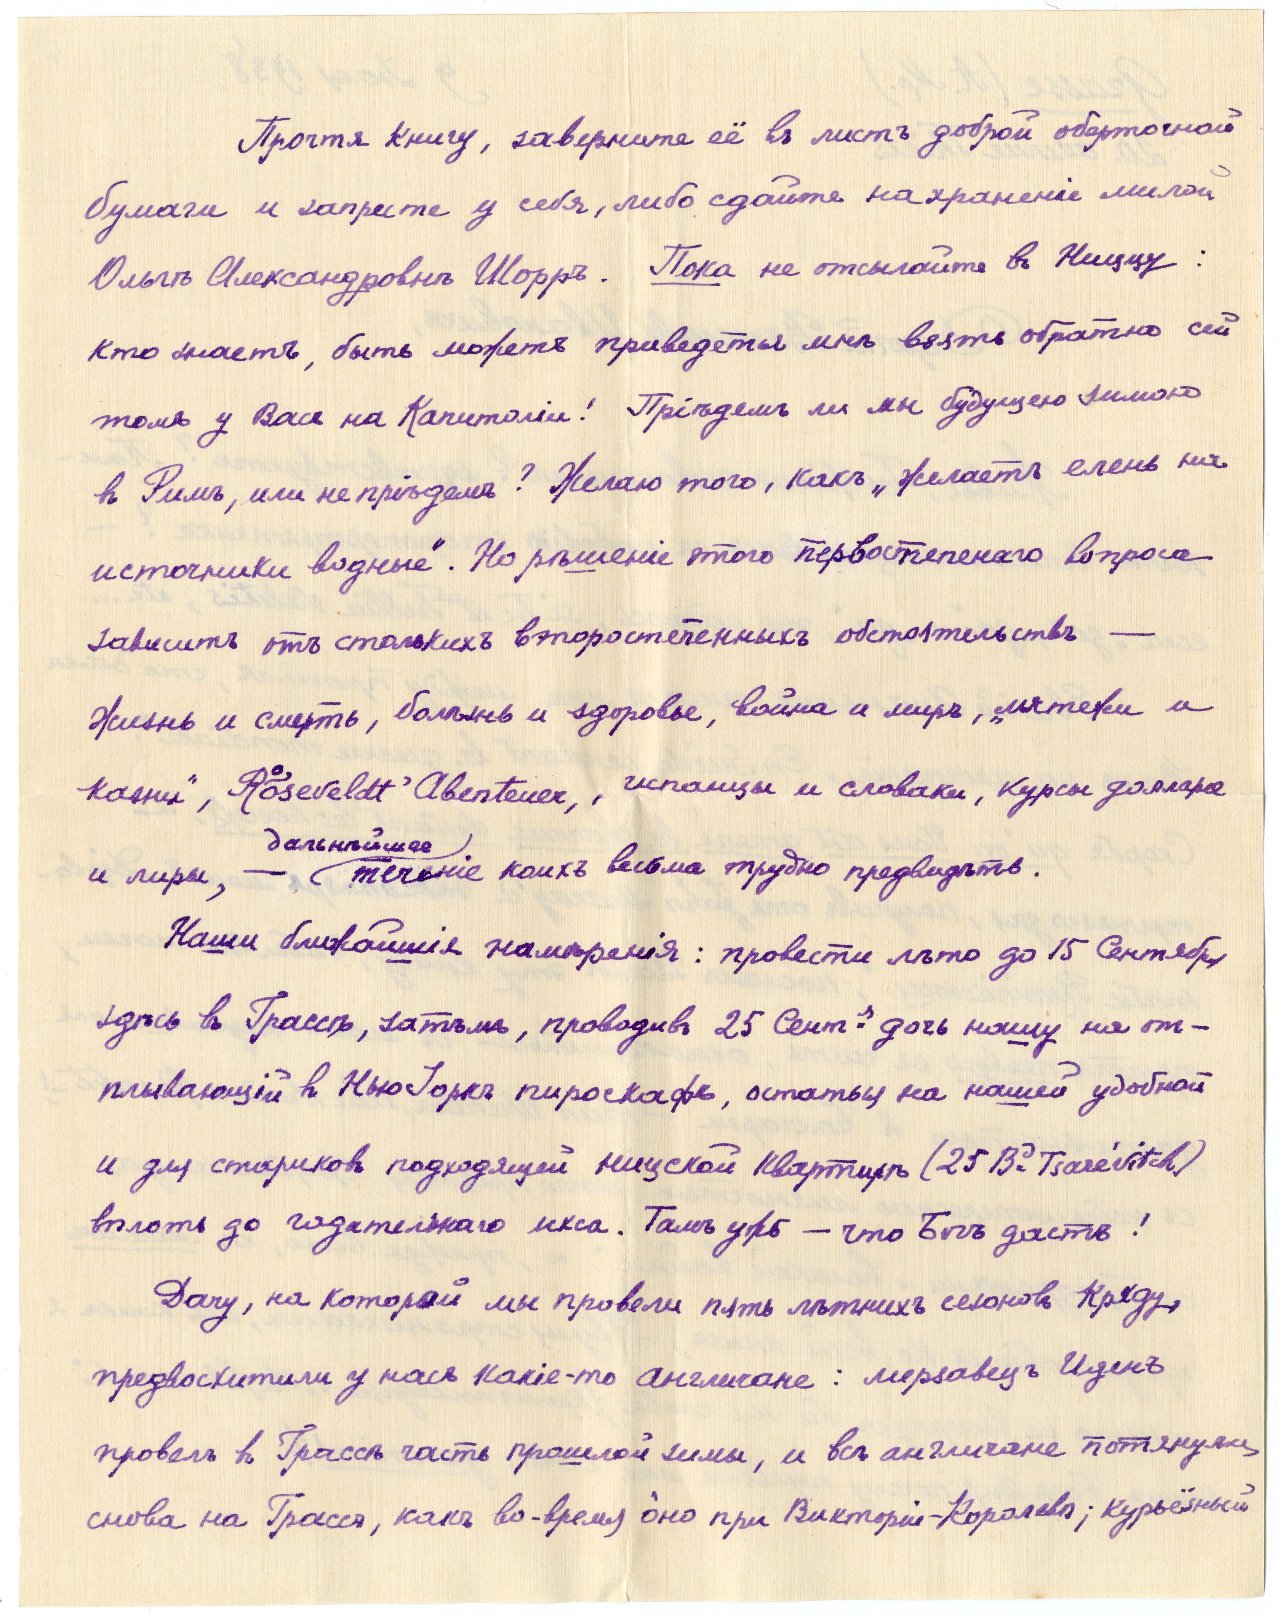 Прочтя книгу, заверните её въ листъ доброй оберточной
бумаги и заприте у себя, либо сдайте на храненіе милой
Ольгѣ Александровнѣ Шоррь. Пока не отсылайте въ Ниццу:
кто знаетъ, быть можетъ приведется мнѣ взять обратно сей
томъ у Васъ на Капитоліи! Пріѣдемъ ли мы будущею зимою
въ Римъ, или не пріѣдемъ? Желаю того, какъ „желаетъ елень на
источники водные“. Но рѣшеніе этого первостепенаго вопроса
зависитъ отъ столькихъ второстепенныхъ обстоятельствъ —
жизнь и смерть, болѣзнь и здоровье, война и миръ, „мятежи и
казни“, Roseveldt' Abenteuer, испанцы и словаки, курсы доллара
и лиры, — дальнѣйшее теченіе коихъ весьма трудно предвидѣть.
Наши ближайшія намѣренія: провести лѣто до 15 Сентября
здѣсь въ Грассѣ, затѣмъ, проводивъ 25 Сент. дочь нашу на от-
плывающій въ Нью Іоркъ пироскафъ, остаться на нашей удобной
и для стариковъ подходящей ниццской квартирѣ (25 Bd Tsarévitch)
вплоть до гадательнаго икса. Тамъ ужъ — что Богъ дастъ!
Дачу, на которой мы провели пять лѣтнихъ сезоновъ кряду,
предвосхитили у насъ какіе-то англичане: мерзавецъ Иденъ
провелъ въ Грассѣ часть прошлой зимы, и всѣ англичане потянулись
снова на Грассъ, какъ во-время óно при Викторіи-Королевѣ; курьёзный